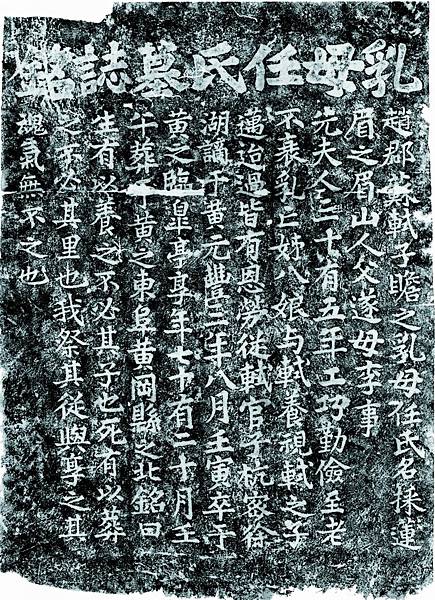 乳母任氏墓誌銘
趙郡蘇軾子瞻之乳母任氏名採蓮
眉之眉山人父遂母李事
先夫人三十有五年工巧勤儉至老
不衰乳亡姊八娘与軾養視軾之子
邁迨過皆有恩勞從軾官于杭密徐
湖謫于黄元豐三年八月壬寅卒于
黄之臨皐亭享年七十有二十月壬
午葬于黄之東阜黄岡縣之北銘曰
生有以養之不必其子也死有以葬
之不必其里也我祭其從與享之其
魂氣無不之也